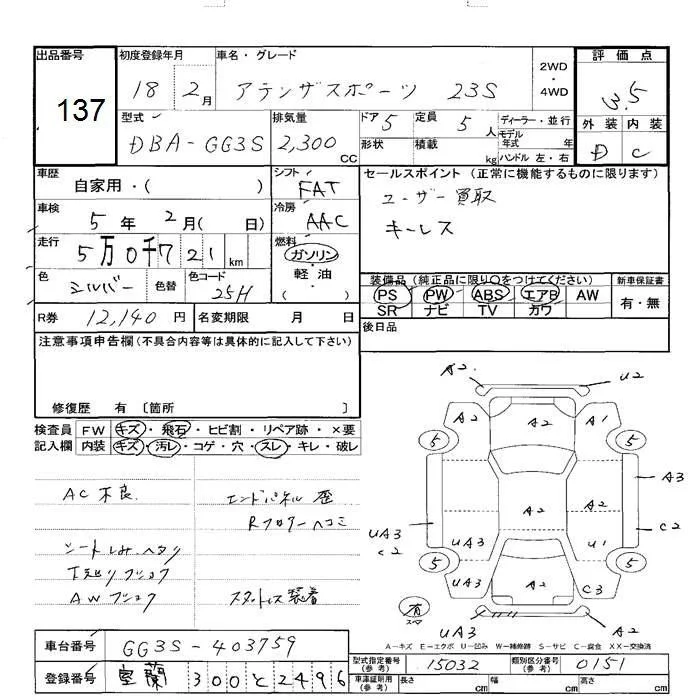 出品番号
137
初度登録年月
18 2月
車名・グレード
アテンザスポーツ 23S
2WD
・
4WD
評価点
3.5
外装 内装
D C
型式
DBA-GG3S
排気量
2,300
CC
ドア 5
形状
定員 5人
積載 kg
ディーラー・並行
モデル年式 年
ハンドル 左・右
車歴
自家用・( )
シフト
FAT
車検
5年 2月( 日)
冷房
AAC
走行
5万0千721km
燃料
ガソリン
軽・油
( )
色
シルバー
色替
色コード
25H
セールスポイント (正常に機能するものに限ります)
ユーザー買取
キーレス
装備品 (純正品に限り○をつけてください)
PS PW ABS エアB AW
SR ナビ TV カワ
新車保証書
有・無
R券 12,140円
名変期限 月 日
後日品
注意事項申告欄(不具合内容等は具体的に記入して下さい)
修復歴 有 〔箇所 〕
検査員 FW キズ・飛石・ヒビ割・リペア跡・×要
記入欄 内装 キズ・汚レ・コゲ・穴・スレ・キレ・破レ
AC不良
エンドパネル歪
Rフロアーヘコミ
シートしみ、ヘタリ
AWフショク
スタットレス装着
A2 U2
A2 A2 A1
5 5
A3
A2 A2
UA3 C2
C2 UA3 U1
5 5
UA3 A2 C3
有
スマ
UA3 A2
A-キズ E-エクボ U-凹み W-補修跡 S-サビ C-腐食 XX-交換済
車台番号 GG3S-403759
登録番号 室蘭 300 と 2496
型式指定番号
(参考)
15032
類別区分番号
(参考)
0151
車庫証明用
(参考)
長さ cm
幅 cm
高さ cm